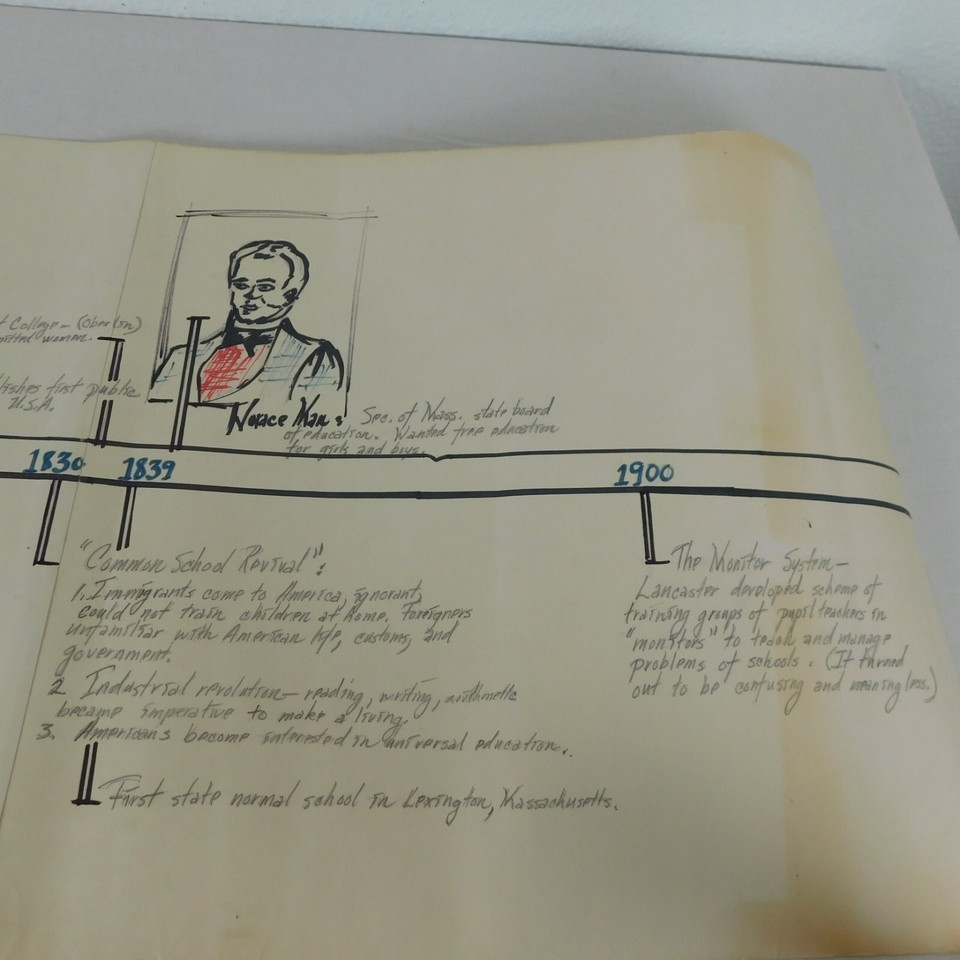 College - (Oberlin)
women.
first public
U.S.A.
Horace Man : Sec. of Mass. state board
of education. Wanted free education
for girls and boys.
1830 1839 1900
"Common School Revival":
1. Immigrants come to America, ignorant,
could not train children at home. Foreigners
unfamiliar with American life, customs, and
government.
2 Industrial revolution - reading, writing, arithmetic
became imperative to make a living.
3. Americans become interested in universal education.
First state normal school in Lexington, Massachusetts.
The Monitor System -
Lancaster developed scheme of
training groups of pupil teachers in
"monitors" to teach and manage
problems of schools. (It turned
out to be confusing and meaningless.)